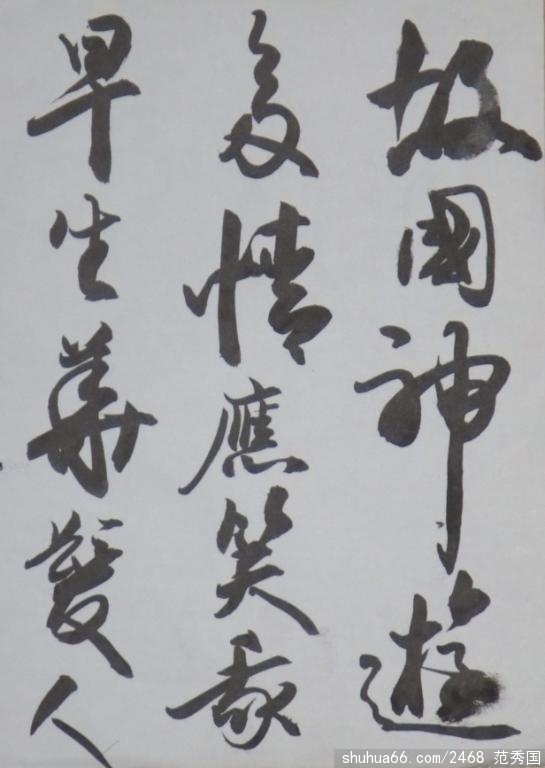 故國神遊
多情應笑我
早生華髮人
shuhua66.com/2468 范秀国